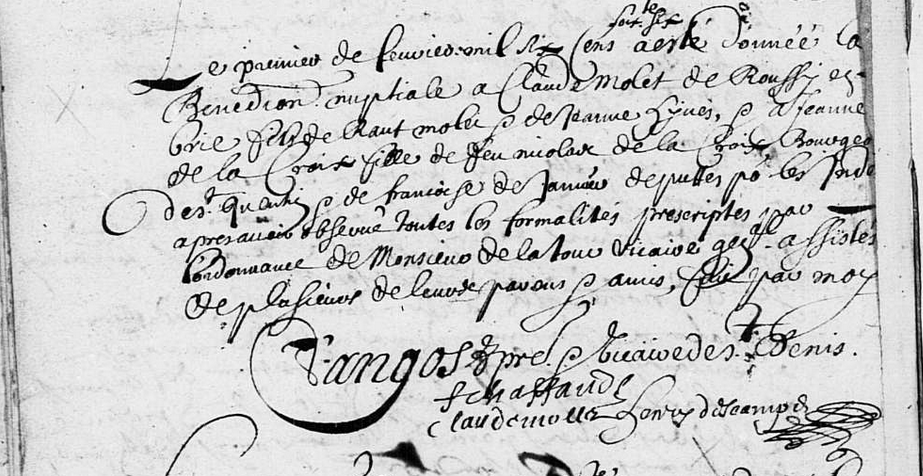 Le premier de feuvrier mil six cens soixte sept a esté donnée la
Benediction nuptiale a Claude Molet de Roussy en
brie fils de Raut molet & de Jeanne & a Jeanne
de la Croix fille de feu nicolas de la Croix Bourgeois
de St quentin & de francoise de Janvier deputtes po les Inde
apres avoir observé toutes les formalités prescriptes par
lordonnance de Monsieur de la tour vicaire geñal assistés
de plusieurs de leurs parens & amis, fait par moy
Vangos pre & vicaire de St Denis.
f chaffaude
Claude mollet henry descamps